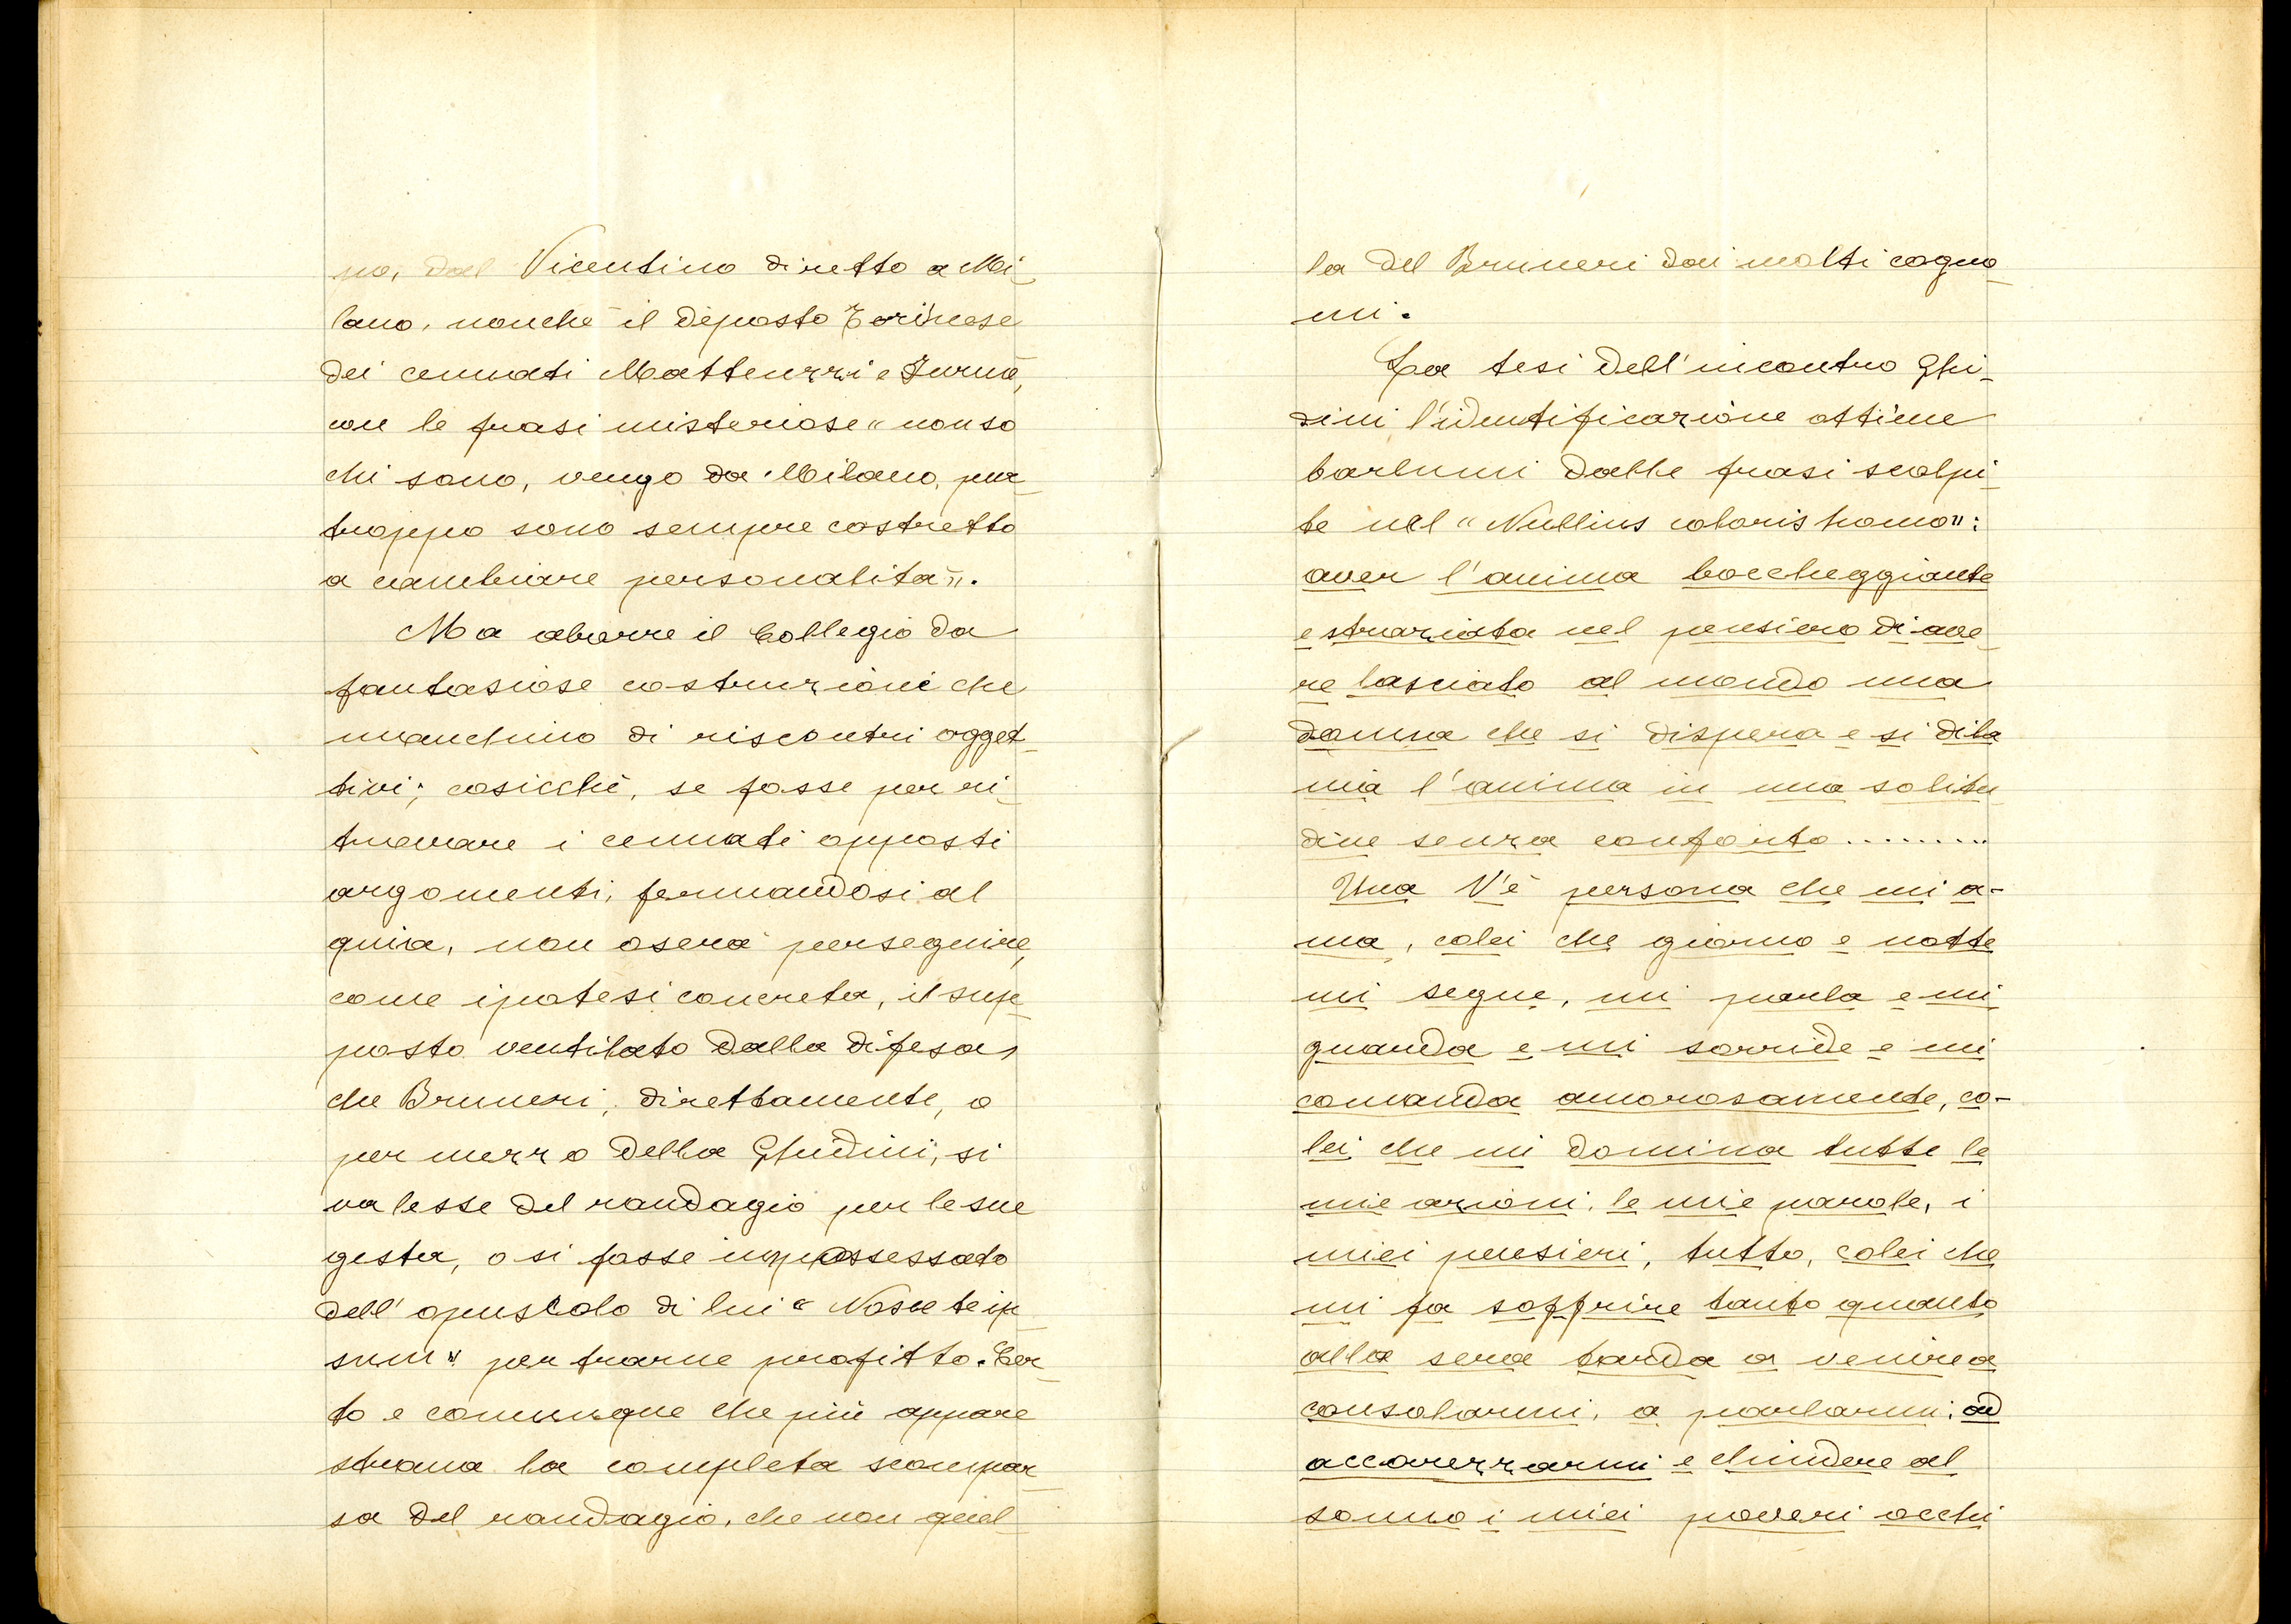 no, dal Vicentino diretto a Mi-
lano, nonchè il deposto Torinese
dei cennati Matteuzzi e Furnò,
con le frasi misteriose "non so
chi sono, vengo da Milano, pur-
troppo sono sempre costretto
a cambiare personalità".
Ma aborre il Collegio da
fantasiose costruzioni che
manchino di riscontri ogget-
tivi; cosicchè, se fosse per ri-
trovare i cennati opposti
argomenti, fermandosi al
quia, non oserà perseguire,
come ipotesi concreta, il sup-
posto ventilato dalla difesa,
che Bruneri, direttamente, o
per mezzo della Ghidini, si
valesse del randagio per le sue
gesta, o si fosse impossessato
dell'opuscolo di lui "Nosce te ip-
sum" per trarne profitto. Cer-
to e comunque che più appare
strana la completa scompar-
sa del randagio, che non quel
la del Bruneri dai molti cogno-
mi.
La tesi dell'incontro Ghi-
dini l'identificazione attiene
barlumi dalle frasi scolpi-
te nel "Nullius coloris homo":
aver l'anima boccheggiante
e straziata nel pensiero di ave-
re lasciato al mondo una
donna che si dispera e si dila
nia l'anima in una solitu
dine senza conforto .........
Una V'è persona che mi a-
ma, colei che giorno e notte
mi segue, mi parla e mi
guarda e mi sorride e mi
comanda amorosamente, co-
lei che mi domina tutte le
mie azioni, le mie parole, i
miei pensieri, tutto, colei che
mi fa soffrire tanto quanto
alla sera tarda a venire a
consolarmi, a parlarmi, ad
accarezzarmi e chiudere al
sonno i miei poveri occhi